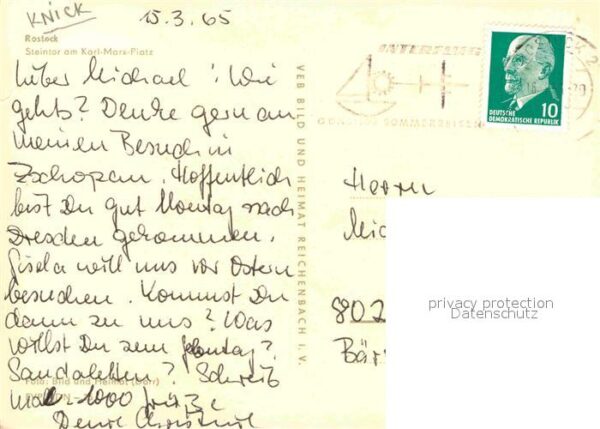 KNICK
15.3.65
Rostock
Steintor am Karl-Marx-Platz
Lieber Michael! Wie
gehts? Denke gern an
meinen Besuch in
Zschopau. Hoffentlich
bist Du gut Montag nach
Dresden gekommen.
Gisela will uns vor Ostern
besuchen. Kommst Du
dann zu uns? Was
willst Du zum
Sandaletten? Schreib
mal 1000 Grüße
Deine Christine
Foto: Bild und Heimat
VEB BILD UND HEIMAT REICHENBACH I. V.
INTERFLUG
SOMMERREISEN
10
DEUTSCHE
DEMOKRATISCHE REPUBLIK
Herrn
Mic
802
Bär
privacy protection
Datenschutz